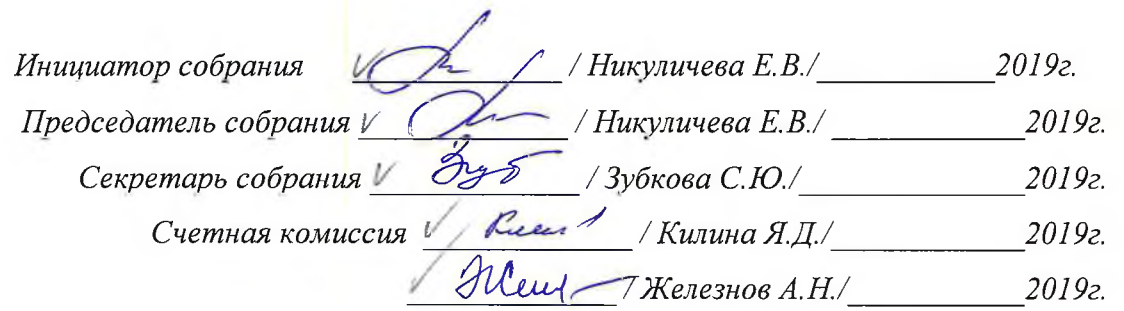 Инициатор собрания / Никуличева Е.В./____________2019г.
Председатель собрания / Никуличева Е.В./ ____________2019г.
Секретарь собрания / Зубкова С.Ю./____________2019г.
Счетная комиссия / Килина Я.Д./____________2019г.
/ Железнов А.Н./____________2019г.